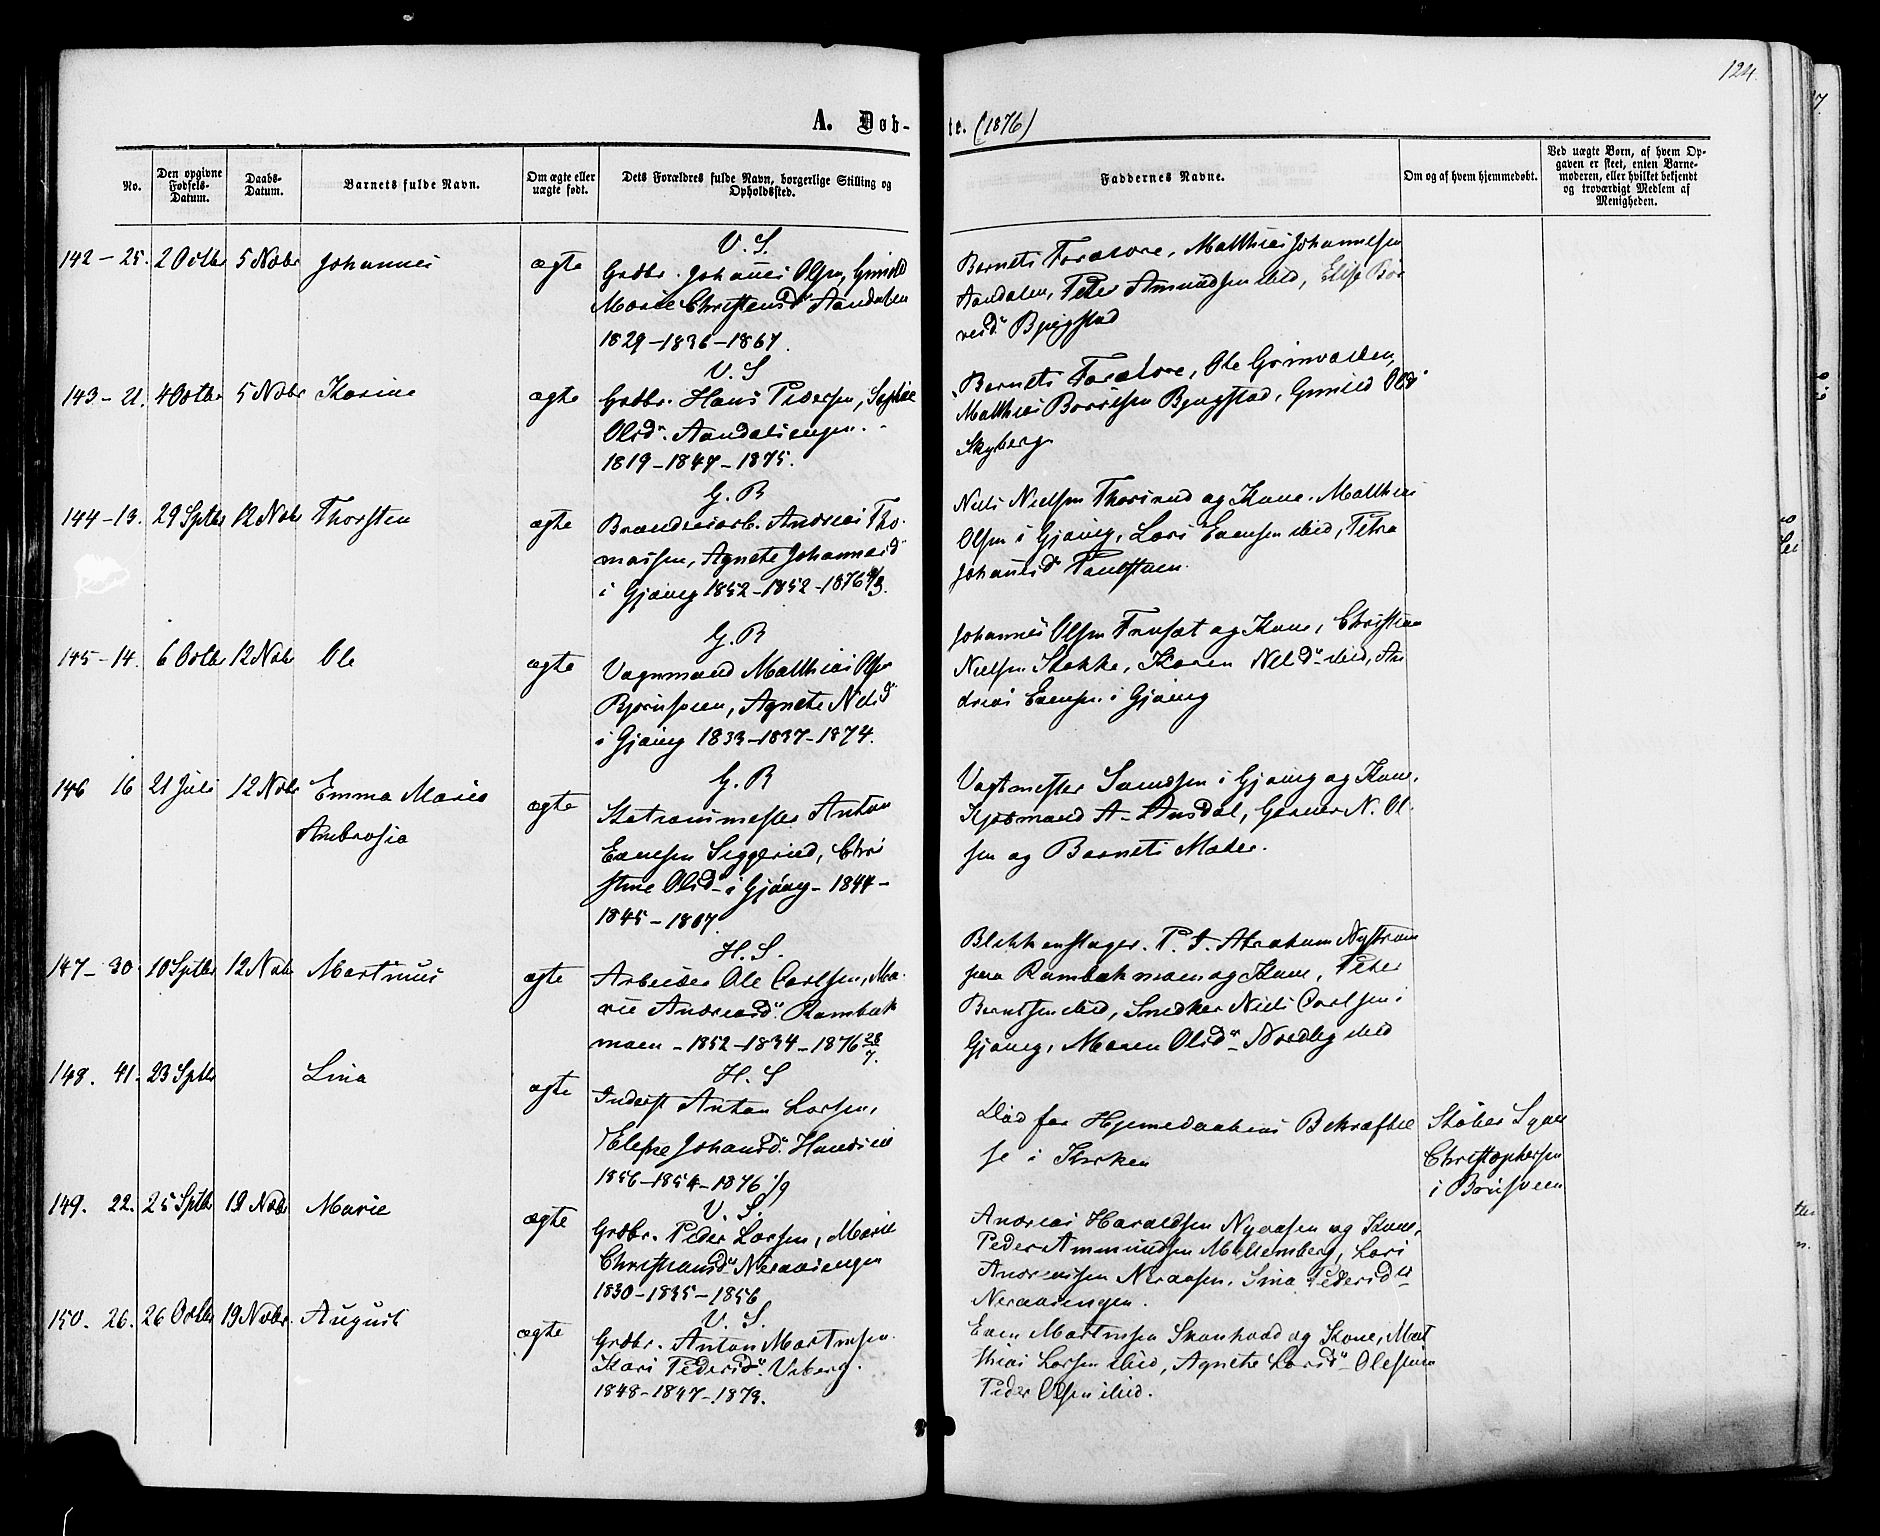 124.
A. Døb-
te. (1876)
No.
Den opgivne Fødsels-Datum.
Daabs-Datum.
Barnets fulde Navn.
Om ægte eller uægte født.
Dets Forældres fulde Navn, borgerlige Stilling og Opholdssted.
Faddernes Navne.
Om og af hvem hjemmedøbt.
Ved uægte Børn, af hvem Op-
gaven er skeet, enten Barne-
moderen, eller hvilket bekjendt
og troværdigt Medlem af
Menigheden.
142 – 25. 2 Octbr 5 Novbr Johannes ægte
V. S.
Grdbr. Johannes Olsen, Gunild
Marie Christensdr Aandalen
1829 – 1836 – 1867.
Barnets Forældre, Matthias Johannesen
Aandalen, Peder Amundsen ibid, Elise Bør
resdr Bjugstad
143 – 21. 4 Octbr 5 Novbr Karine ægte
V. S
Grdbr. Hans Pedersen, Sophie
Olsdr. Aandalsengen.
1819 – 1847 – 1875.
Barnets Forældre, Ole
Matthias Børresen Bjugstad, Gunild Olsdr
Skyberg
144 – 13. 29 Sptbr 12 Novbr Thorsten ægte
G. B
Andreas Tho-
massen, Agnete Johannesdr
i Gjøvig 1852 – 1852 – 1876
Niels Nielsen Thorsrud og Kone, Matthias
Olsen i Gjøvig, Lars Evensen ibid, Petra
Johannesdr
145 – 14. 6 Octbr 12 Novbr Ole ægte
G. B
Vognmand Matthias Olsen
Bjørnsveen, Agnete Nilsdr
i Gjøvig 1833 – 1837 – 1874.
Johannes Olsen og Kone, Christian
Nielsen Stokke, Karen Nilsdr ibid, An
dreas Evensen i Gjøvig
146 16 21 Juli 12 Novbr Emma Marie
Ambrosia
ægte
G. B
Anton
Evensen Seggerud, Chri
stine Olsdr i Gjøvig – 1844 –
1845 – 1867.
Vagtmester i Gjøvig og Kone,
Kjøbmand A. Ansdal, Garver N. Ol-
sen og Barnets Moder.
147 – 30. 10 Sptbr 12 Novbr Martinus ægte
H. S.
Arbeider Ole Carlsen, Ma-
rie Andreasdr. Rambæk
moen – 1852 – 1834 – 1876 28/7.
Blikkenslager P. J. Abraham Nystrøm
paa Rambækmoen og Kone, Peter
Berntsen ibid, Snedker Niels Carlsen i
Gjøvig, Maren Olsdr Nordby ibid
148. 41. 23 Sptbr Lina ægte
H. S
Inderst Anton Larsen,
Johansdr.
1856 – 1854 – 1876 1/9
Død før Hjemmedaabens Bekræftel
se i Kirken
Christophersen
149. 22. 25 Sptbr 19 Novbr Marie ægte
V. S.
Grdbr. Peder Larsen, Marie
Christiansdr Neraasengen
1830 – 1835 – 1856
Andreas Haraldsen Nyaasen og Kone,
Peder Ammundsen Mellemberg, Lars
Andreassen Neraasen, Lina Pedersdr
Neraasengen.
150. 26. 26 Octbr 19 Novbr. August ægte
V. S.
Grdbr. Anton Martinsen
Kari Pedersdr. Viberg.
1848 – 1847 – 1873.
Even Martinsen og Kone, Mat
thias Larsen ibid, Agnete Larsdr
Peder Olsen ibid.